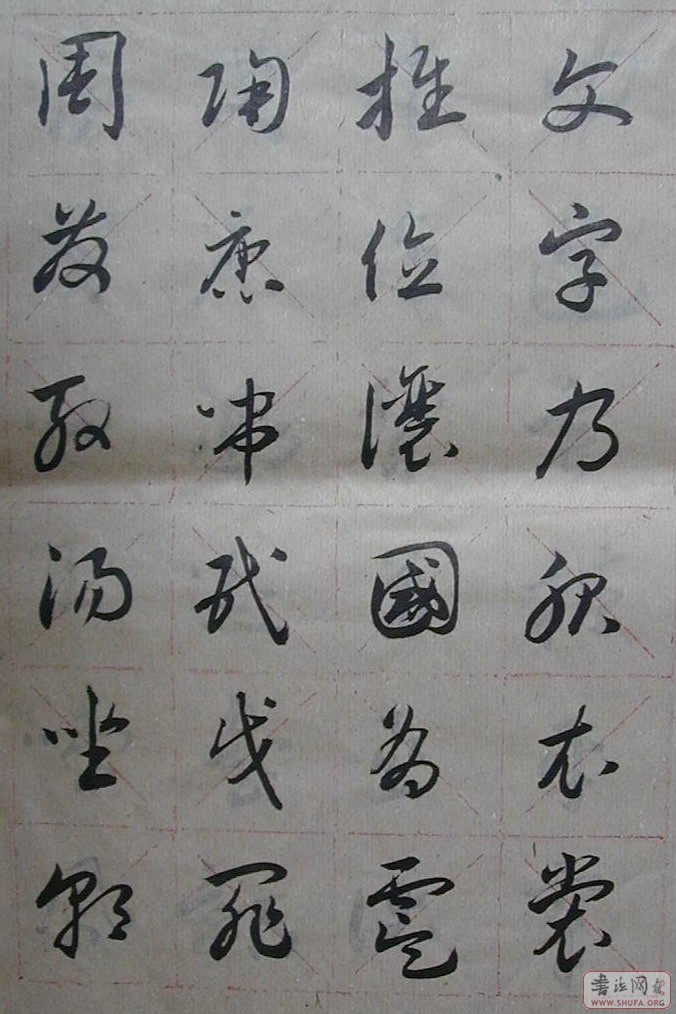 文字乃服衣裳
推位讓國有虞
陶唐吊民伐罪
周發殷湯坐朝
書法网
WWW.SHUFA.ORG